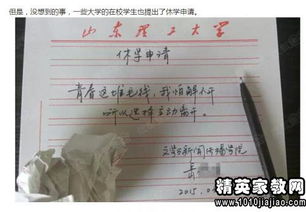 但是，没想到的事，一些大学的在校学生也提出了休学申请。
山东理工大学
休学申请
青春这堆毛线，我怕解不开
所以选择主动离开。
文学与新闻传播学院
2015.
精英家教网
www.1010jiajiao.com